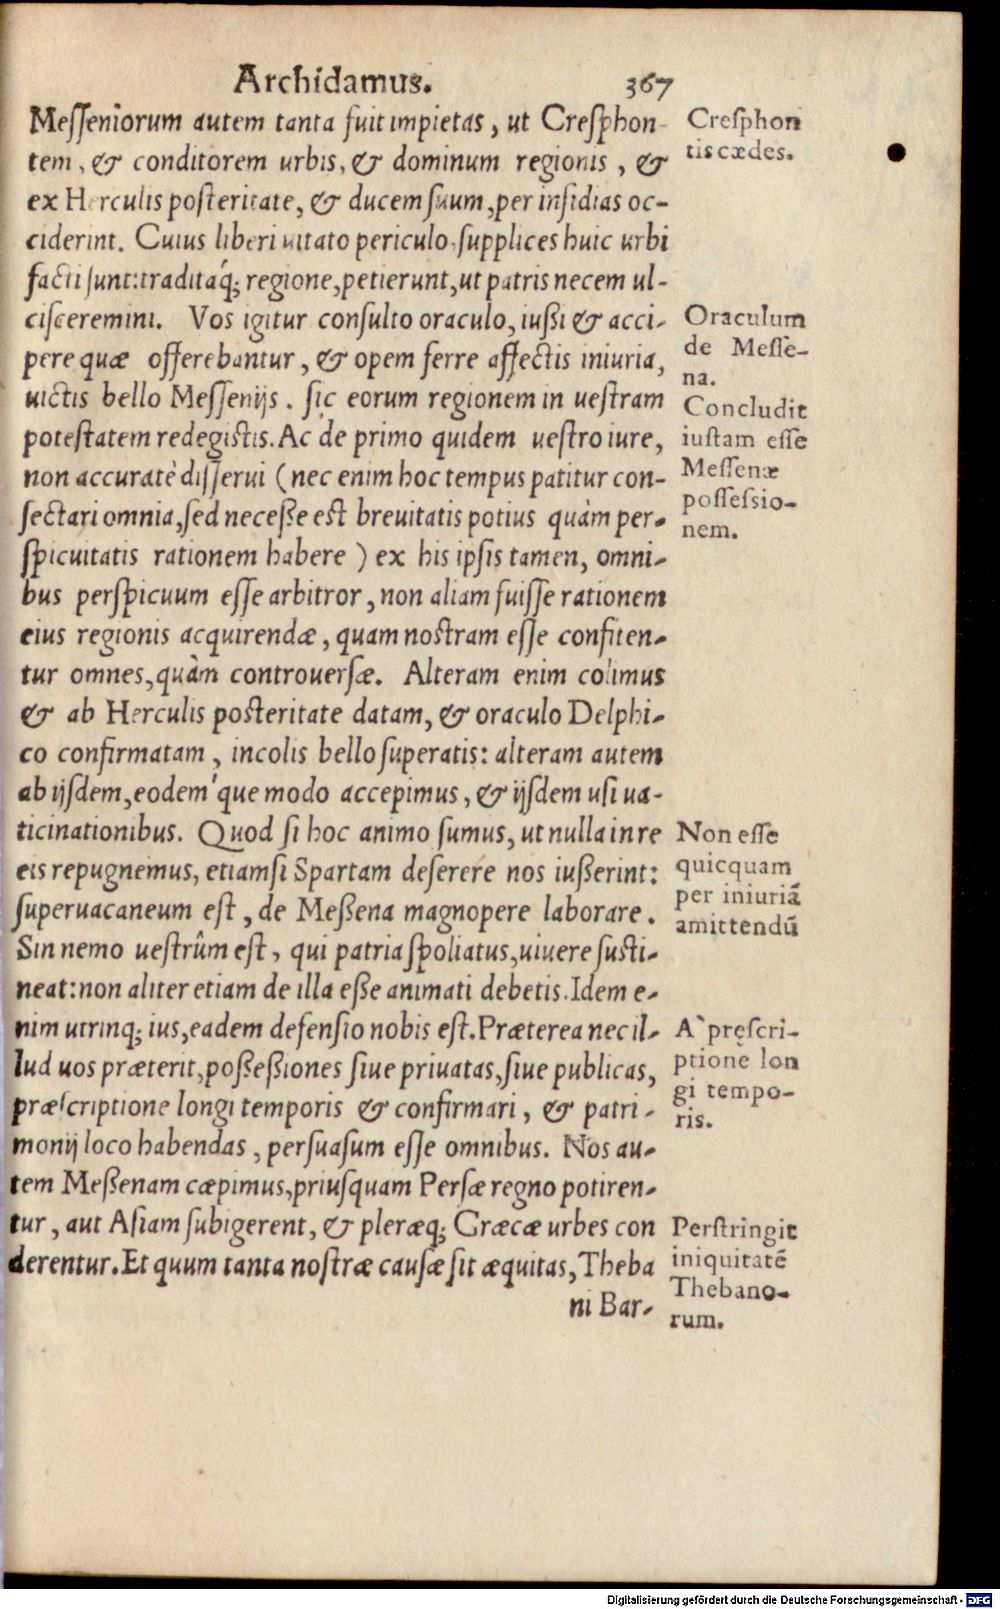 Archidamus. 367
Meſſeniorum autem tanta fuit impietas, ut Creſphon
tem, & conditorem urbis, & dominum regionis, &
ex Herculis poſteritate, & ducem ſuum, per inſidias oc-
ciderint. Cuius liberi uitato periculo, ſupplices huic urbi
facti ſunt: traditáq; regione, petierunt, ut patris necem ul-
ciſceremini. Vos igitur conſulto oraculo, iußi & acci-
pere quæ offerebantur, & opem ferre affectis iniuria,
uictis bello Meſſenijs. ſic eorum regionem in ueſtram
poteſtatem redegiſtis. Ac de primo quidem ueſtro iure,
non accuratè diſſerui (nec enim hoc tempus patitur con-
ſectari omnia, ſed neceße eſt breuitatis potius quàm per-
ſpicuitatis rationem habere) ex his ipſis tamen, omni-
bus perſpicuum eſſe arbitror, non aliam fuiſſe rationem
eius regionis acquirendæ, quam noſtram eſſe confiten-
tur omnes, quàm controuerſæ. Alteram enim colimus
& ab Herculis poſteritate datam, & oraculo Delphi-
co confirmatam, incolis bello ſuperatis: alteram autem
ab ijſdem, eodem'que modo accepimus, & ijſdem uſi ua-
ticinationibus. Quod ſi hoc animo ſumus, ut nulla in re
eis repugnemus, etiamſi Spartam deſerere nos iußerint:
ſuperuacaneum eſt, de Meßena magnopere laborare.
Sin nemo ueſtrûm eſt, qui patria ſpoliatus, uiuere ſuſti-
neat: non aliter etiam de illa eße animati debetis. Idem e-
nim utrinq; ius, eadem defenſio nobis eſt. Præterea nec il-
lud uos præterit, poßeßiones ſiue priuatas, ſiue publicas,
præſcriptione longi temporis & confirmari, & patri-
monij loco habendas, perſuaſum eſſe omnibus. Nos au-
tem Meßenam cæpimus, priuſquam Perſæ regno potiren-
tur, aut Aſiam ſubigerent, & pleræq; Græcæ urbes con
derentur. Et quum tanta noſtræ cauſæ ſit æquitas, Theba
ni Bar-
Creſphon
tis cædes.
Oraculum
de Meſſe-
na.
Concludit
iuſtam eſſe
Meſſenæ
poſſeſsio-
nem.
Non eſſe
quicquam
per iniuriã
amittendũ
A` pręſcri-
ptione lon
gi tempo-
ris.
Perſtringit
iniquitatẽ
Thebano-
rum.
Digitalisierung gefördert durch die Deutsche Forschungsgemeinschaft - DFG